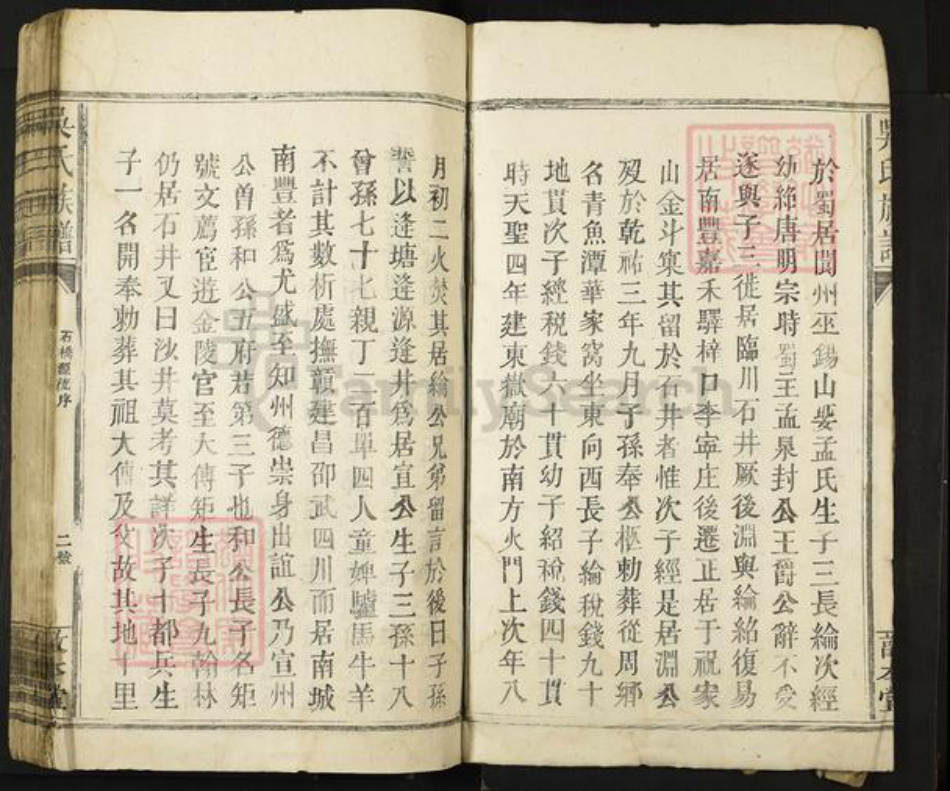 於蜀居閬州巫錫山娶孟氏生子三長綸次經
幼紹唐明宗時蜀王孟泉封公王爵公辭不受
遂與子三徙居臨川石井厥後淵與綸紹復易
居南豐嘉禾驛梓口李寧庄後遷正居于祝家
山金斗窠其留於石井者惟次子經是居淵公
歿於乾祐三年九月子孫奉公柩勅葬從周鄉
名青魚潭華家窩坐東向西長子綸稅錢九十
地貫次子經税錢六十貫幼子紹稅錢四十貫
時天聖四年建東嶽廟於南方火門上次年八
月初二火焚其居綸公兄弟留言於後日子孫
誓以逢塘逢源逢井為居宜公生子三孫十八
曾孫七十七親丁二百單四人童婢驢馬牛羊
不計其數析處撫贛建昌邵武四川而居南城
南豐者爲尤盛至知州德崇身出誼公乃宣州
公曽孫和公五府君第三子也和公長子名矩
號文薦宦遊金陵官至大傳矩生長子九翰林
仍居石井又曰沙井莫考其詳次子十都兵生
子一名開奉勅葬其祖大傅及父故其地十里
吳氏族譜
石橋經後序
二號
敦本堂